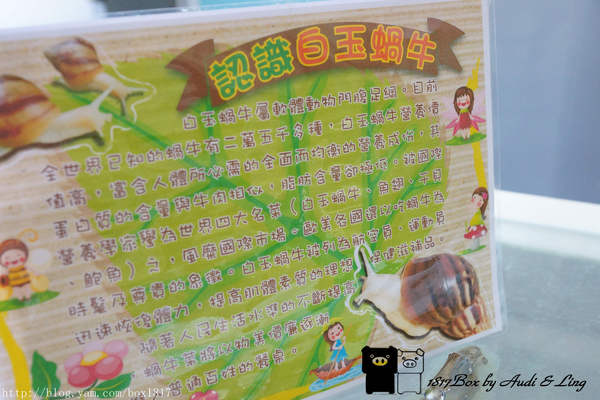 認識白玉蝸牛
白玉蝸牛屬軟體動物門腹足綱。目前
全世界已知的蝸牛有二萬五千多種，白玉蝸牛營養價
值高，富含人體所必需的全面而均衡的營養成份，其
蛋白質的含量與牛肉相近，脂肪含量卻極低。被國際
營養學家譽為世界四大名菜（白玉蝸牛、魚翅、干貝
、鮑魚）之，風靡國際市場。歐美各國還以吃蝸牛為
時髦及尊貴的象徵。白玉蝸牛被列為航空員、運動員
迅速恢復體力，提高肌體素質的理想保健滋補品。
隨著人民生活水準的不斷提高
，蝸牛菜將以物美價廉逐漸
普俩百姓的餐桌。
1817Box by Audi & Ling
http://blog.yam.com/box1817